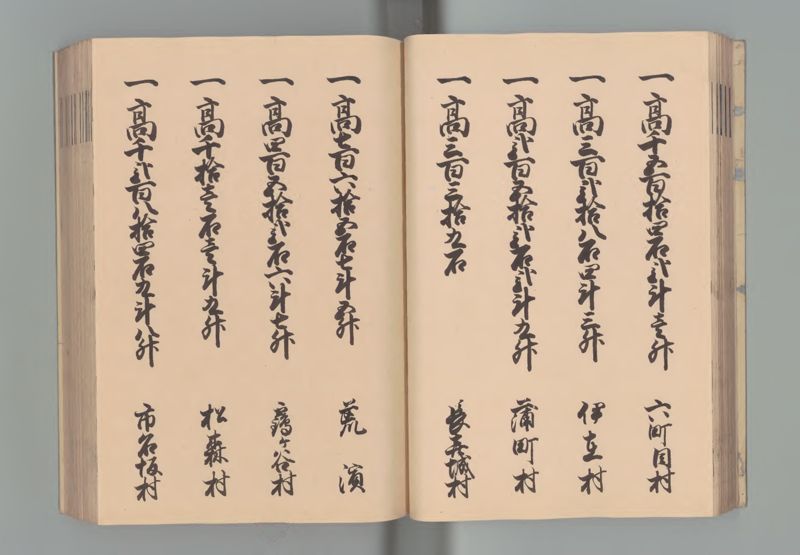 一高千五百拾四石弐斗壱升 六町目村
一高三百弐拾八石四斗三升 伊在村
一高弐百五拾弐石弐斗九升 蒲町村
一高三百三拾九石 長喜城村
一高七百六拾五石七斗五升 荒濱
一高四百五拾弐石六斗七升 鶴ヶ谷村
一高千拾壱石壱斗九升 松森村
一高千弐百八拾四石九斗八升 市名坂村